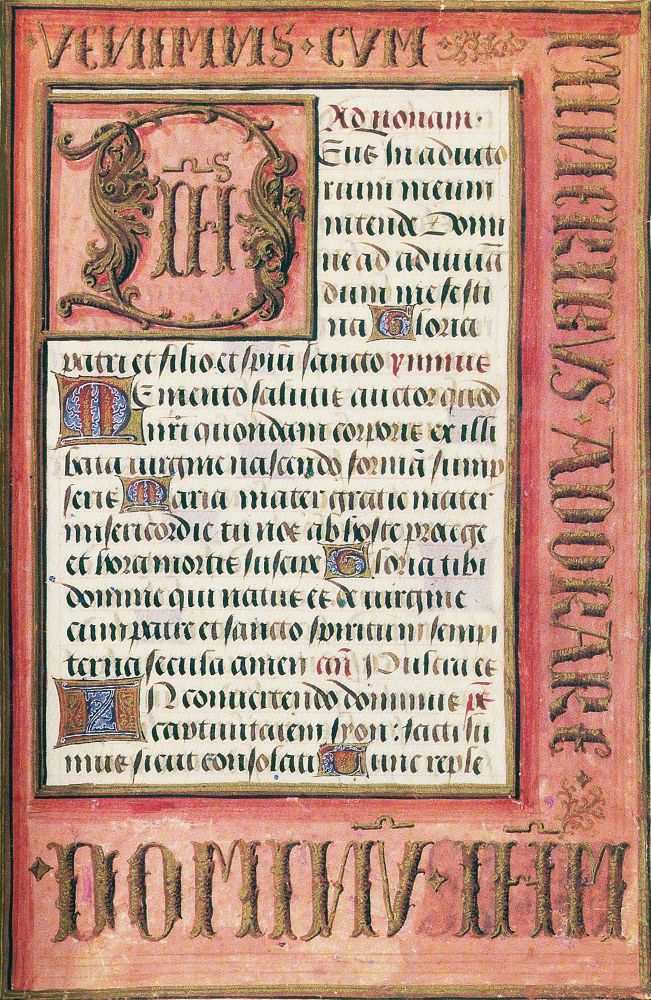 VENIMUS · CVM
MUNERIBVS · ADORARE
DOMINŪ · IHM
IHS
Ad nonam.
Eus In adiuto
rium meum
intende Domi
ne ad adiuuā
dum me festi
na Gloria
patri et filio et spiūi sancto ymnus
Memento salutis auctor quod
nr̄i quondam corporis ex illi
bata uirgine nascendo formā sump
seris Maria mater gratie mater
misericordie tu nos ab hoste protege
et hora mortis suscipe Gloria tibi
domine qui natus es de uirgine
cum patre et sancto spiritu in sempi
terna secula amen añ Pulcra es
IN conuertendo dominus ps
captiuitatem syon: facti su
mus sicut consolati Tunc reple